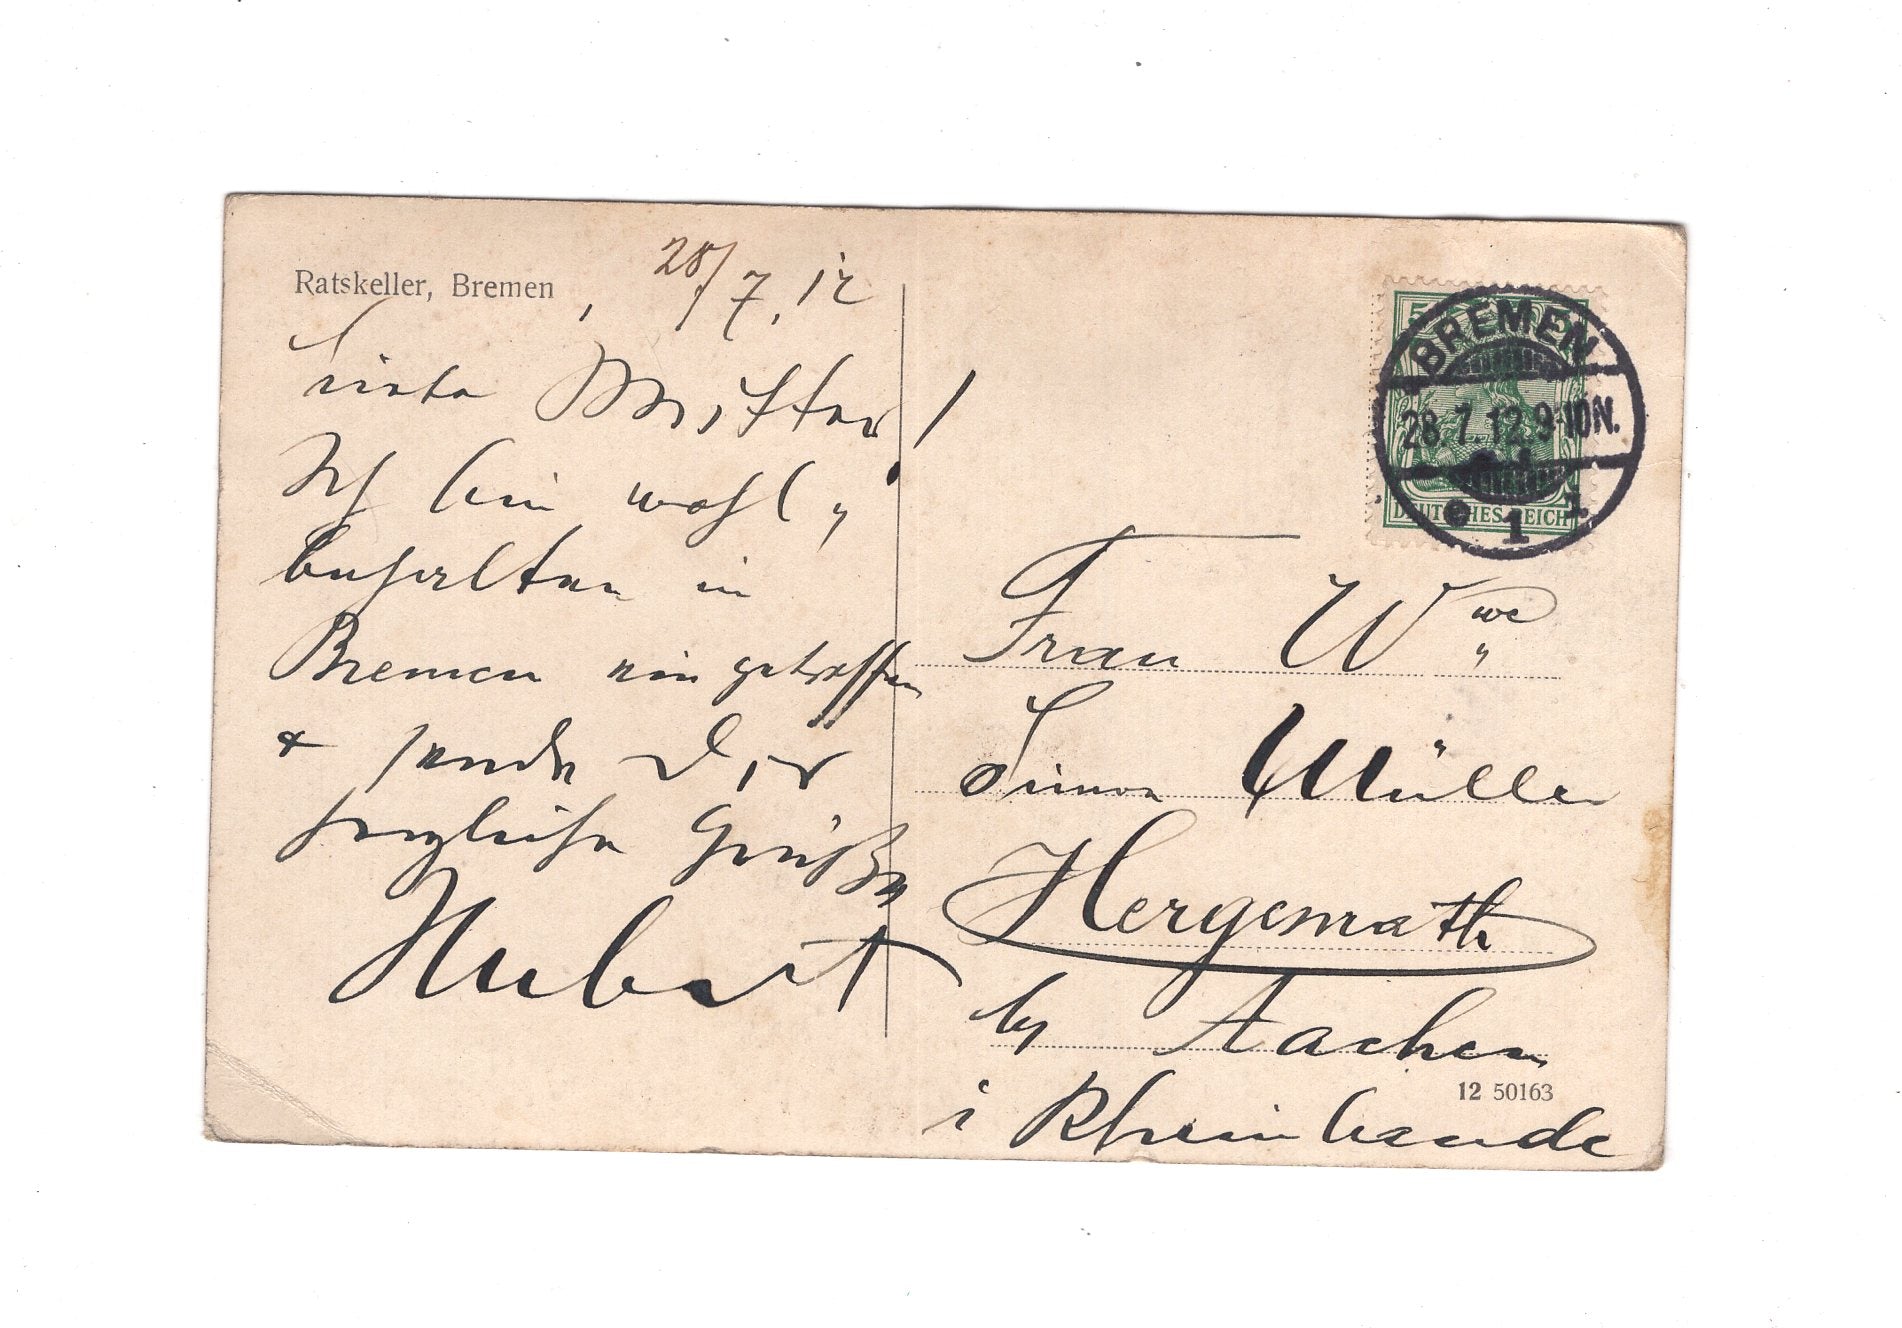 Ratskeller, Bremen, 28/7.12
Liebe Mutter!
Ich bin wohl„
behalten in
Bremen eingetroffen
& sende Dir
herzliche Grüße
Hubert
5
BREMEN
28.7.12.9-10N.
1
DEUTSCHES REICH
Frau Wwe
Simon Müller
Hergenrath
by Aachen
12 50163
i Rheinlande